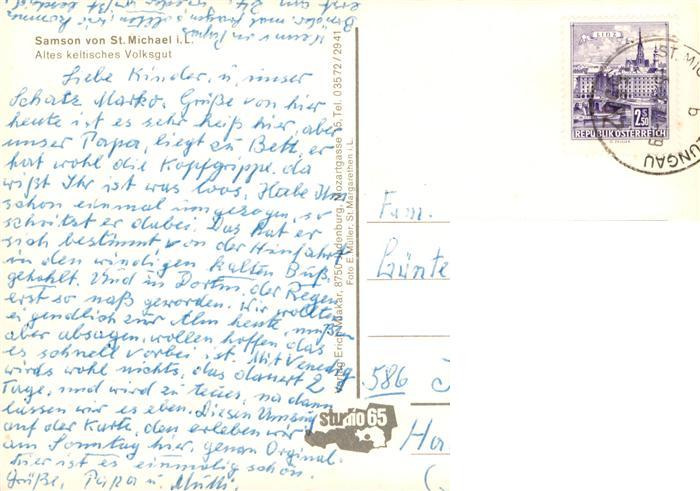 Samson von St. Michael i. L.
Altes keltisches Volksgut
Liebe Kinder, u. unser
Schatz Marko, Grüße von hier
heute ist es sehr heiß hier, aber
unser Papa, liegt zu Bett, er
hat wohl die Kopfgrippe. da
wißt Ihr ist was loos. Habe Ihn
schon einmal umgezogen, so
schwitzt er dabei. Das hat er
sich bestimmt von der Hinfahrt
in den windigen kalten Buß,
gehohlt. Und in Dortm. der Regen
erst so naß geworden. Wir wollten
eigendlich zur Alm heute, mußten
aber absagen, wollen hoffen das
es schnell vorbei ist. Mit Venedig
wirds wohl nichts, das dauert 2
Tage, und wird zu teuer, na dann
lassen wir es eben. Diesen Umzug
auf der Karte, den erleben wir
am Sonntag hier, genau Orginal.
hier ist es einmalig schön.
Grüße, Papa u. Mutti.
Verlag Erich Mlakar, 8750 Judenburg, Mozartgasse 15, Tel. 03572/2941
Foto E. Müller, St. Margarethen i. L.
studio 65
LINZ
2.50
S
REPUBLIK ÖSTERREICH
ST. MIC
LUNGAU
Fam.
Günte
586
Ha